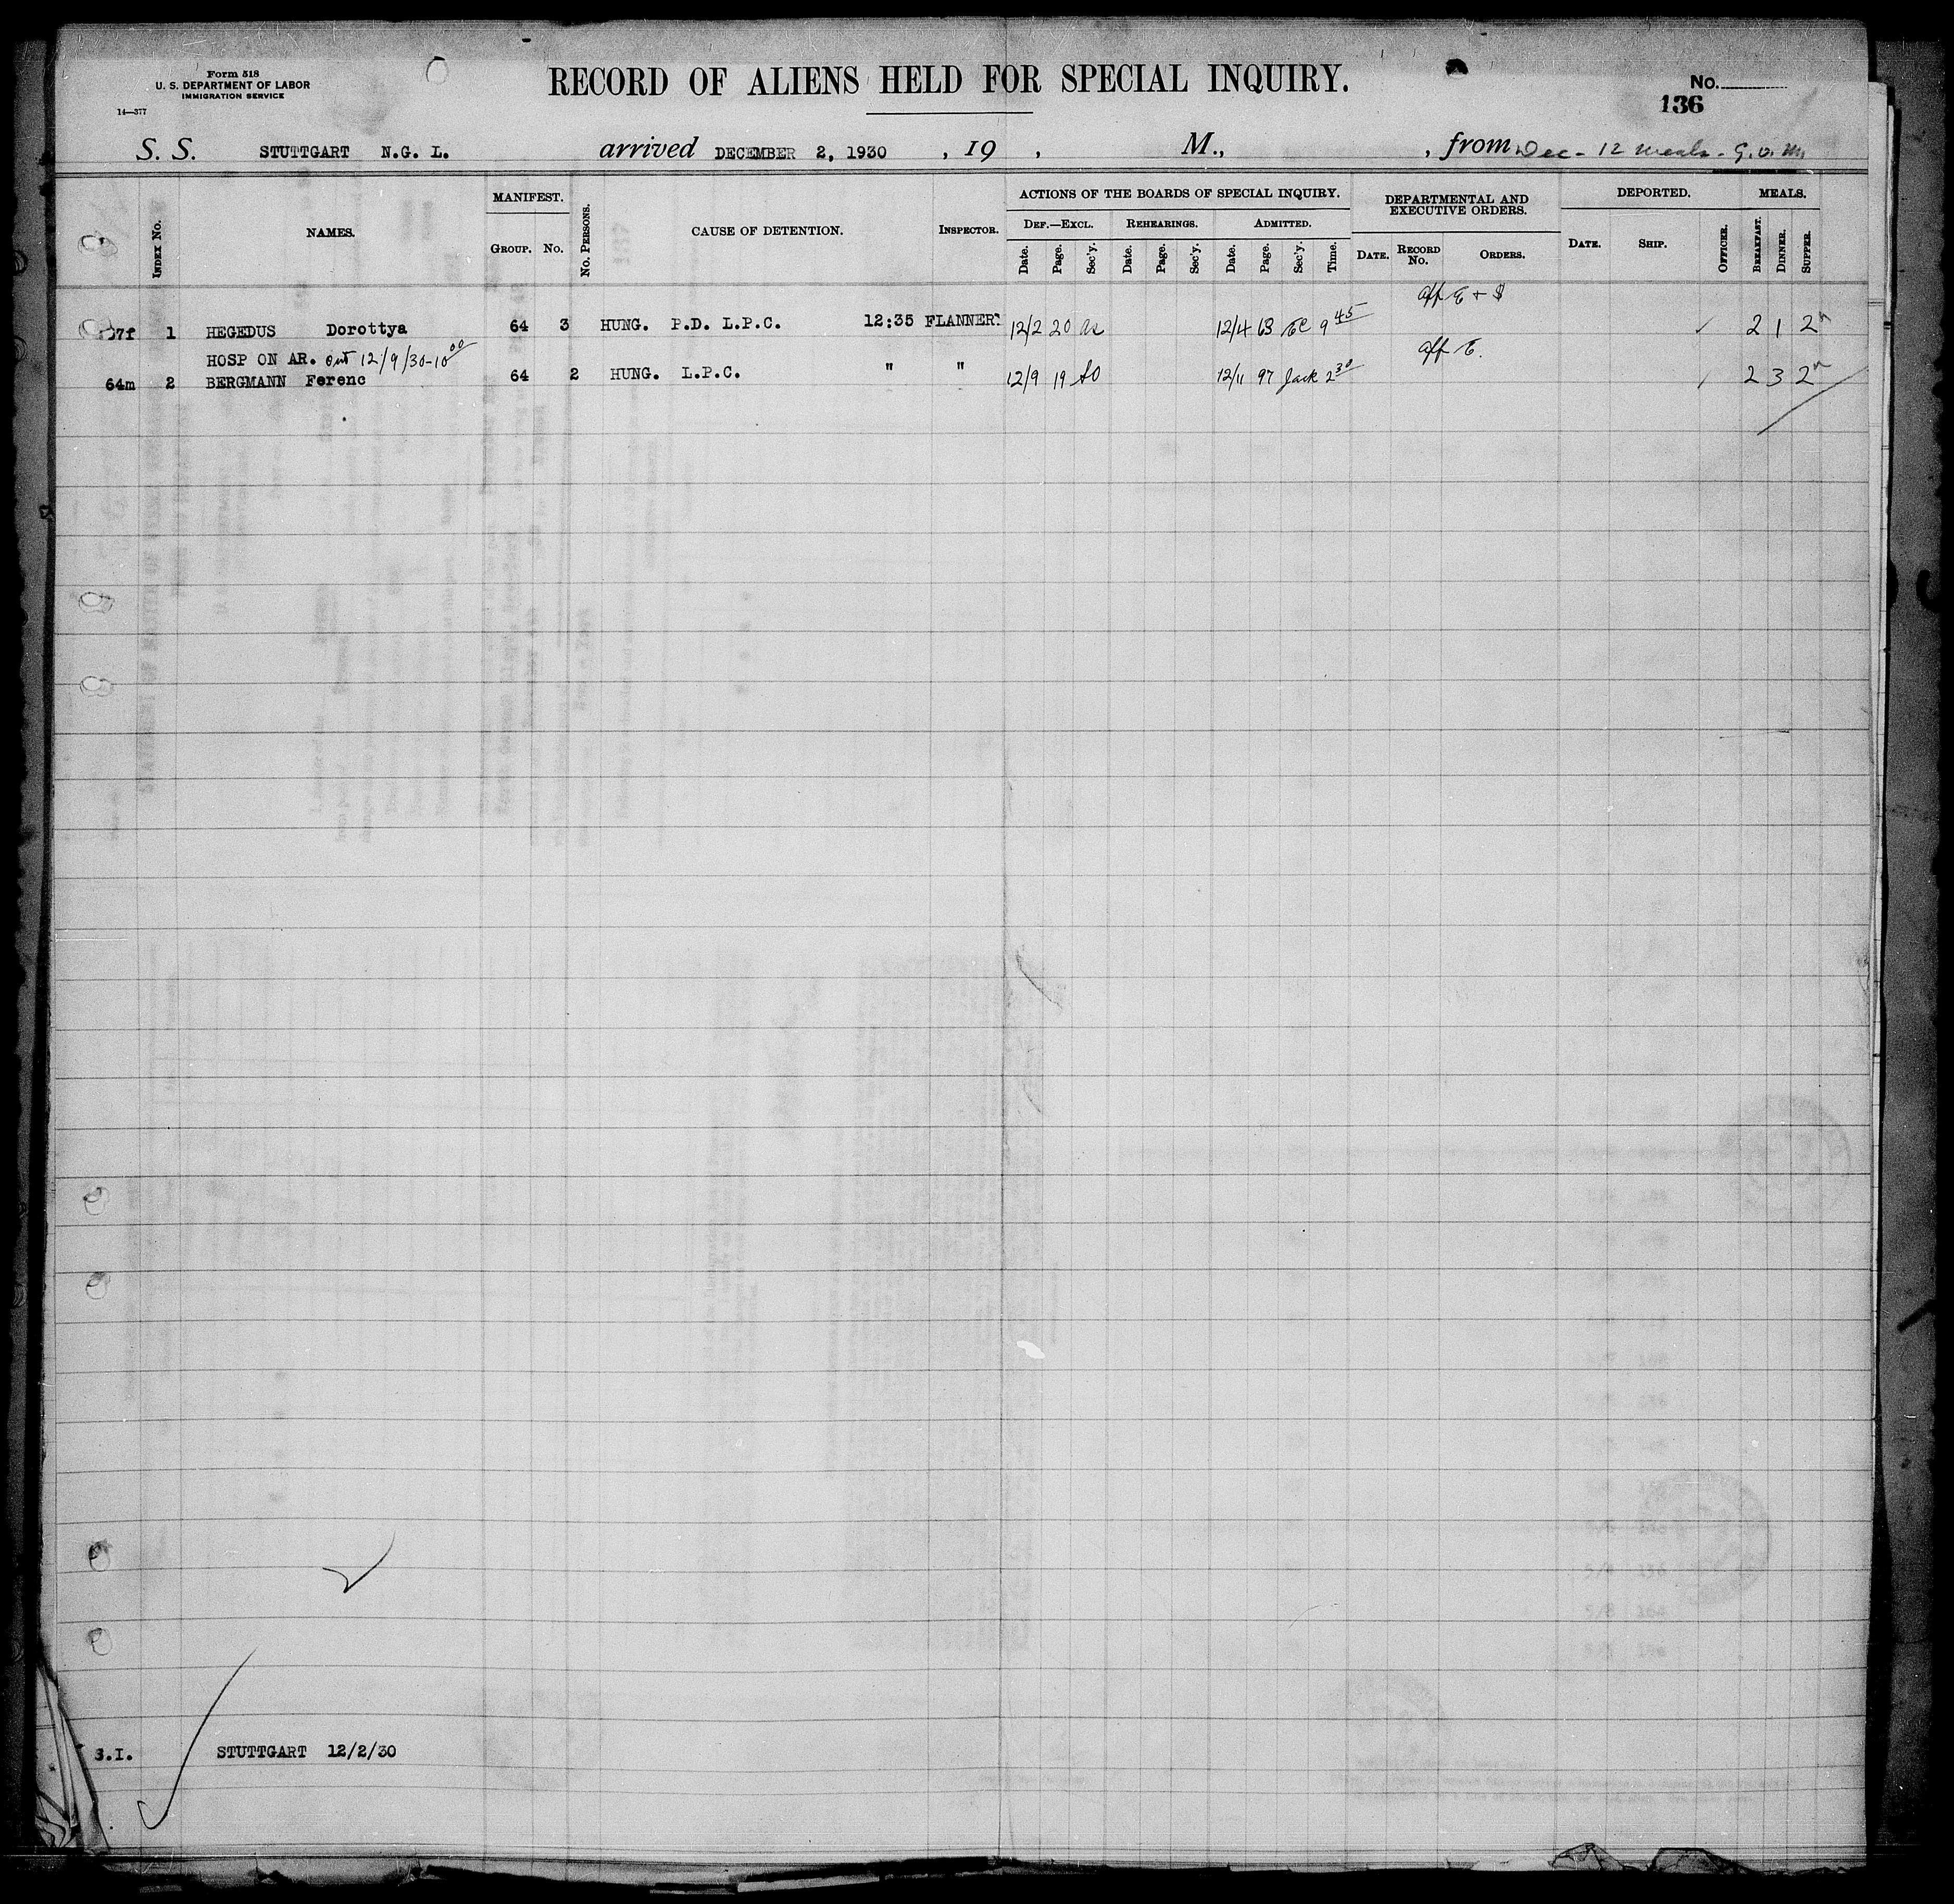 Form 518
U. S. DEPARTMENT OF LABOR
IMMIGRATION SERVICE
14—377
RECORD OF ALIENS HELD FOR SPECIAL INQUIRY.
No.
136
S. S. STUTTGART N.G. L. arrived DECEMBER 2, 1930 , 19 , M., , from Dec - 12 meals - G.O.M.
INDEX No. NAMES. MANIFEST. GROUP. No. No. PERSONS. CAUSE OF DETENTION. INSPECTOR. ACTIONS OF THE BOARDS OF SPECIAL INQUIRY. DEF.—EXCL. Date. Page. Sec'y. REHEARINGS. Date. Page. Sec'y. ADMITTED. Date. Page. Sec'y. Time. DEPARTMENTAL AND EXECUTIVE ORDERS. DATE. RECORD No. ORDERS. DEPORTED. DATE. SHIP. OFFICER. MEALS. BREAKFAST. DINNER. SUPPER.
aff E + $
37f 1 HEGEDUS Dorottya 64 3 HUNG. P.D. L.P.C. 12:35 FLANNERY 12/2 20 12/4 63 9 45 2 1 2
HOSP ON AR. out 12/9/30-10 00 aff E.
64m 2 BERGMANN Ferenc 64 2 HUNG. L.P.C. " " 12/9 19 12/11 97 Jack 2 30 2 3 2
S.I. STUTTGART 12/2/30